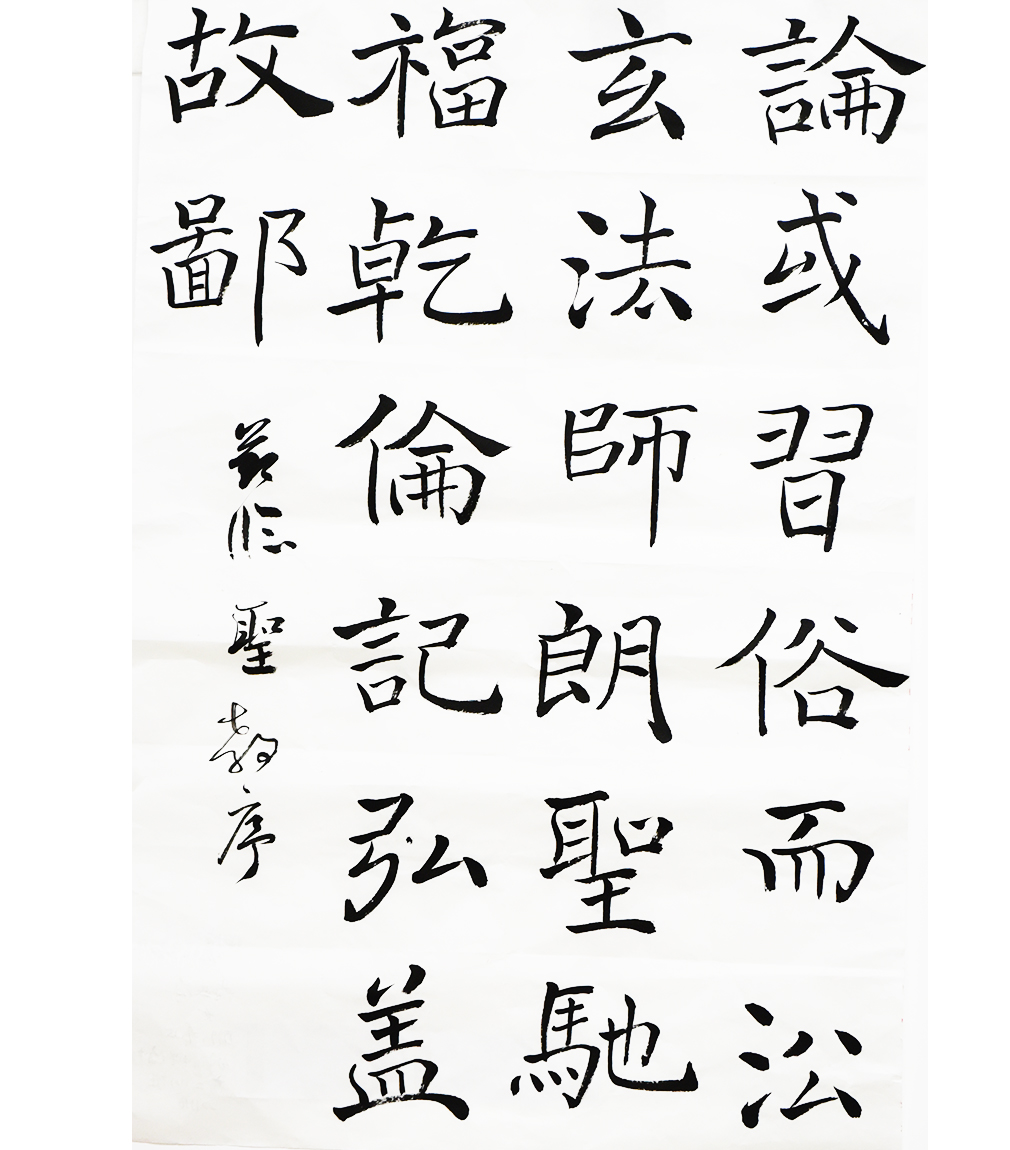 論或習俗而沿
玄法師朗聖馳
福乾倫記弘盖
故鄙
節臨聖教序